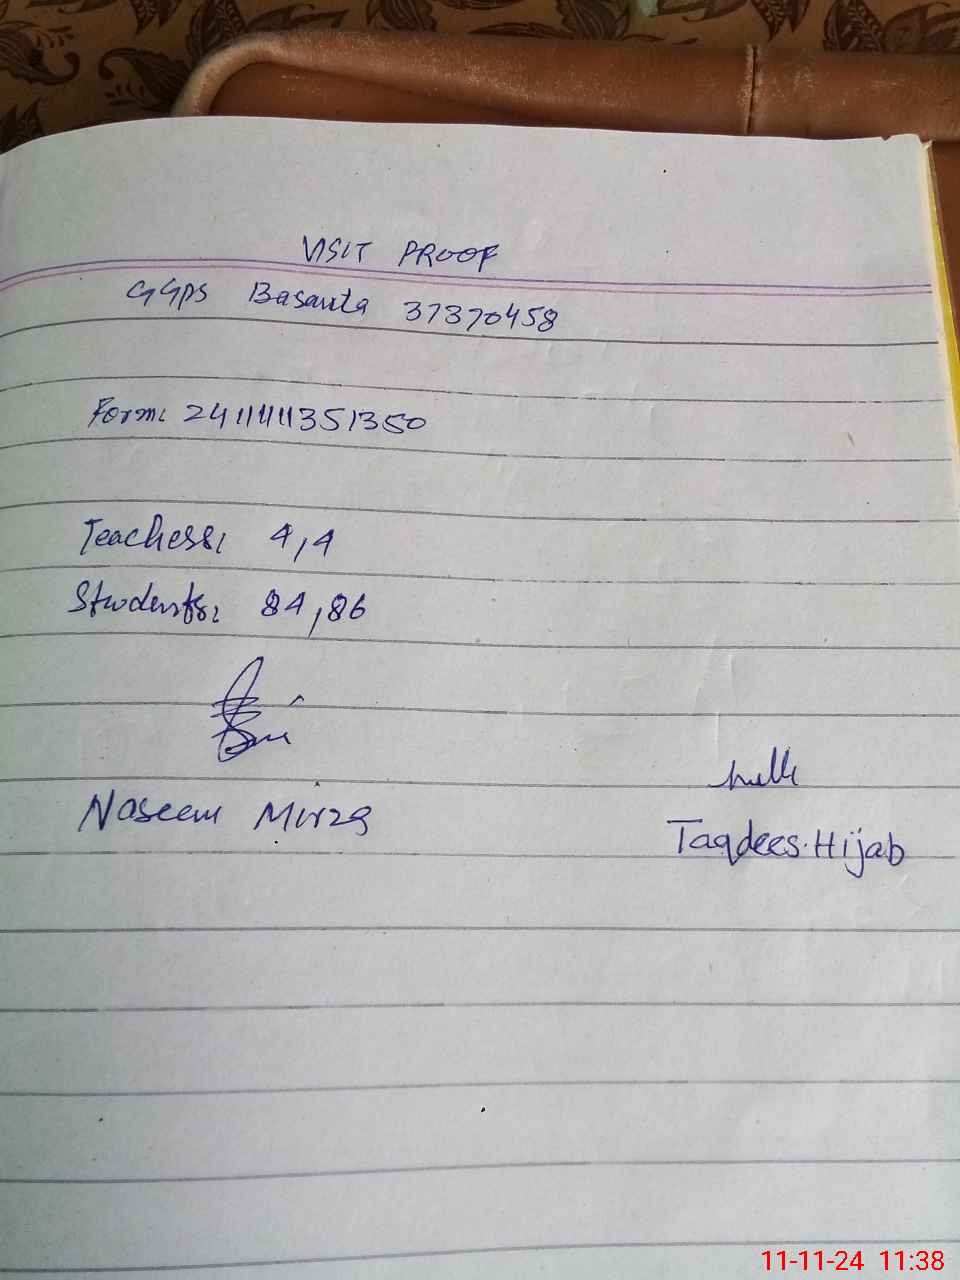 VISIT PROOF
GGPS Basanta 37370458
Form: 241111351350
Teachers: 4,4
Students: 84,86
Naseem Mirza
Taqdees.Hijab
11-11-24 11:38